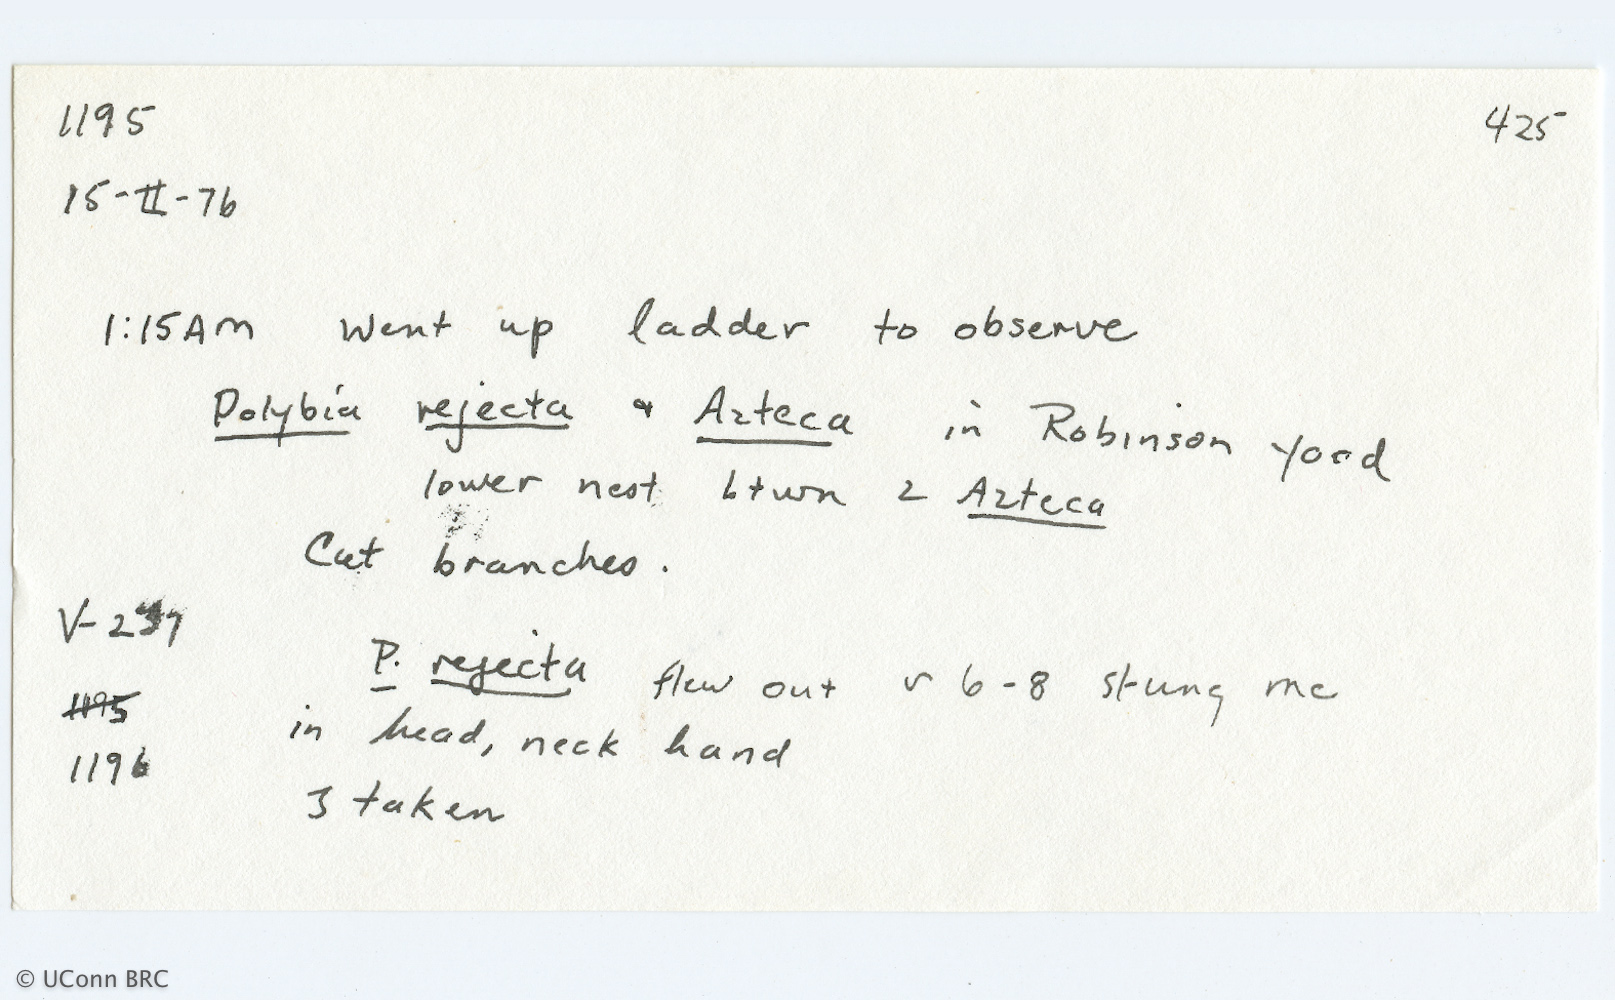 1195 425
15-II-76
1:15AM Went up ladder to observe
Polybia rejecta & Azteca in Robinson yard
lower nest btwn 2 Azteca
Cut branches.
V-
P. rejecta flew out 6-8 stung me
1195
in head, neck hand
1196
3 taken
© UConn BRC